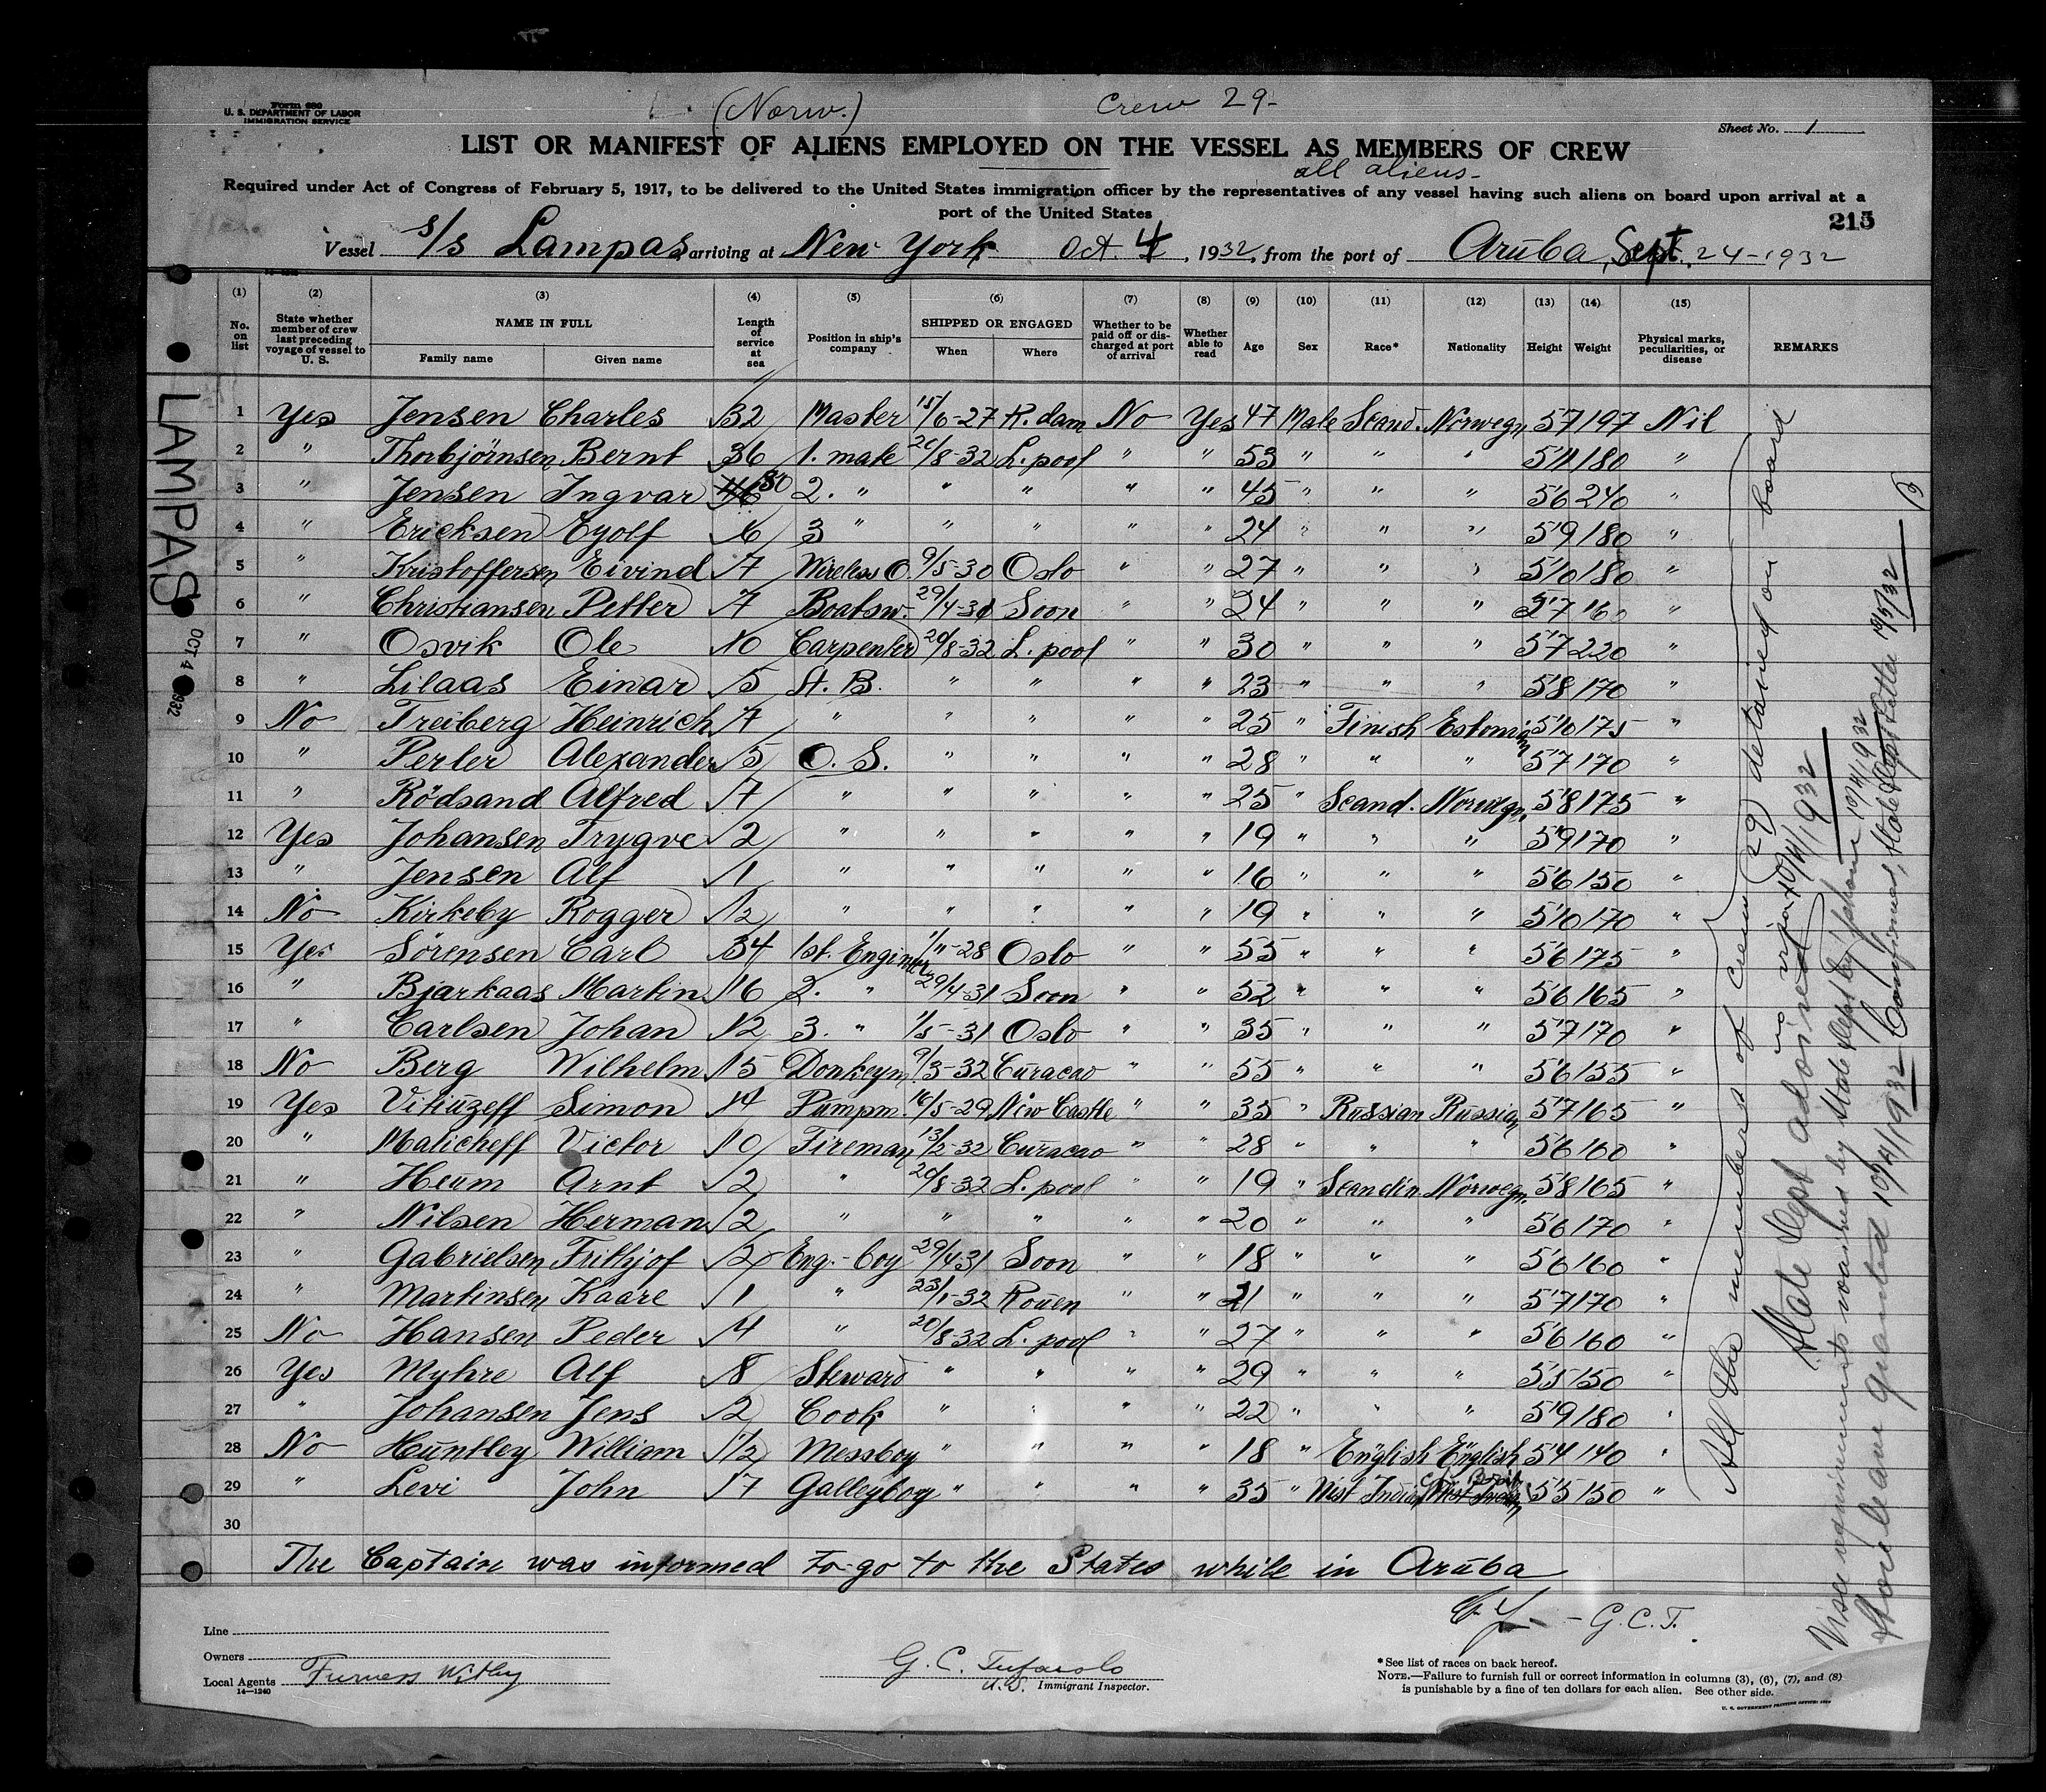 Form 689
U. S. DEPARTMENT OF LABOR
IMMIGRATION SERVICE
(Norw.)
Crew 29-
Sheet No. 1
LIST OR MANIFEST OF ALIENS EMPLOYED ON THE VESSEL AS MEMBERS OF CREW
all aliens-
Required under Act of Congress of February 5, 1917, to be delivered to the United States immigration officer by the representatives of any vessel having such aliens on board upon arrival at a
port of the United States
215
Vessel s/s Lampas, arriving at New York Oct. 4, 1932, from the port of Aruba, Sept. 24-1932
(1) (2) (3) (4) (5) (6) (7) (8) (9) (10) (11) (12) (13) (14) (15)
No. on list State whether member of crew last preceding voyage of vessel to U. S. NAME IN FULL Family name Given name Length of service at sea Position in ship's company SHIPPED OR ENGAGED When Where Whether to be paid off or discharged at port of arrival Whether able to read Age Sex Race* Nationality Height Weight Physical marks, peculiarities, or disease REMARKS
1 Yes Jensen Charles 32 Master 15/6-27 R.dam No Yes 47 Male Scand. Norwegn 5'7 197 Nil
2 " Thorbjörnsen Bernt 36 1. mate 20/8-32 L.pool " " 53 " " " 5'11 180 "
3 " Jensen Ingvar 30 2. " " " " " 45 " " " 5'6 240 "
4 " Ericksen Eyolf 6 3 " " " " " 24 " " " 5'9 180 "
5 " Kristoffersen Eivind 7 Wireless O. 9/5-30 Oslo " " 27 " " " 5'10 180 "
6 " Christiansen Petter 7 Boatsw. 29/4-31 Soon " " 24 " " " 5'7 160 "
7 " Osvik Ole 10 Carpenter 20/8-32 L.pool " " 30 " " " 5'7 220 "
8 " Lilaas Einar 5 A. B. " " " " 23 " " " 5'8 170 "
9 No Freiberg Heinrich 7 " " " " " 25 " Finish Estonian 5'10 175 "
10 " Perler Alexander 5 O. S. " " " " 28 " " " 5'7 170 "
11 " Rödsand Alfred 7 " " " " " 25 " Scand. Norwegn. 5'8 175 "
12 Yes Johansen Trygve 2 " " " " " 19 " " " 5'9 170 "
13 " Jensen Alf 1 " " " " " 16 " " " 5'6 150 "
14 No Kirkeby Rogger 1/2 " " " " " 19 " " " 5'10 170 "
15 Yes Sörensen Carl 34 1st. Engineer 1/11-28 Oslo " " 55 " " " 5'6 175 "
16 " Bjarkaas Martin 16 2. " 29/4-31 Soon " " 52 " " " 5'6 165 "
17 " Carlsen Johan 12 3. " 1/5-31 Oslo " " 35 " " " 5'7 170 "
18 No Berg Wilhelm 15 Donkeym. 9/3-32 Curacao " " 55 " " " 5'6 155 "
19 Yes Vitiuzeff Simon 14 Pumpm. 16/5-29 New Castle " " 35 " Russian Russian 5'7 165 "
20 " Malicheff Victor 10 Fireman 13/2-32 Curacao " " 28 " " " 5'6 160 "
21 " Heum Arnt 2 " 20/8-32 L.pool " " 19 " Scandin Norwegn. 5'8 165 "
22 " Nilsen Herman 2 " " " " " 20 " " " 5'6 170 "
23 " Gabrielsen Frithjof 2 Eng.-boy 29/4-31 Soon " " 18 " " " 5'6 160 "
24 " Martinsen Kaare 1 " 23/1-32 Rouen " " 21 " " " 5'7 170 "
25 No Hansen Peder 4 " 20/8-32 L.pool " " 27 " " " 5'6 160 "
26 Yes Myhre Alf 8 Steward " " " " 29 " " " 5'5 150 "
27 " Johansen Jens 2 Cook " " " " 22 " " " 5'9 180 "
28 No Huntley William 1/2 Messboy " " " " 18 " English English 5'4 140 "
29 " Levi John 17 Galleyboy " " " " 35 " West Indian West Indian 5'5 150 "
30
The Captain was informed to go to the States while in Aruba
G.C.T.
LAMPAS
OCT 4 1932
All the members of crew (29) detained on board
State Dept advised
10/4/1932
Visa requirements waived by State Dept by 'phone 10/4/1932
Shore leave granted 10/4/1932 Confirmed, State Dept letter 10/5/32
Line
Owners
Local Agents Furness Withy
14-1240
G. C. Tufarolo
U.S. Immigrant Inspector.
* See list of races on back hereof.
NOTE.—Failure to furnish full or correct information in columns (3), (6), (7), and (8)
is punishable by a fine of ten dollars for each alien. See other side.
U. S. GOVERNMENT PRINTING OFFICE: